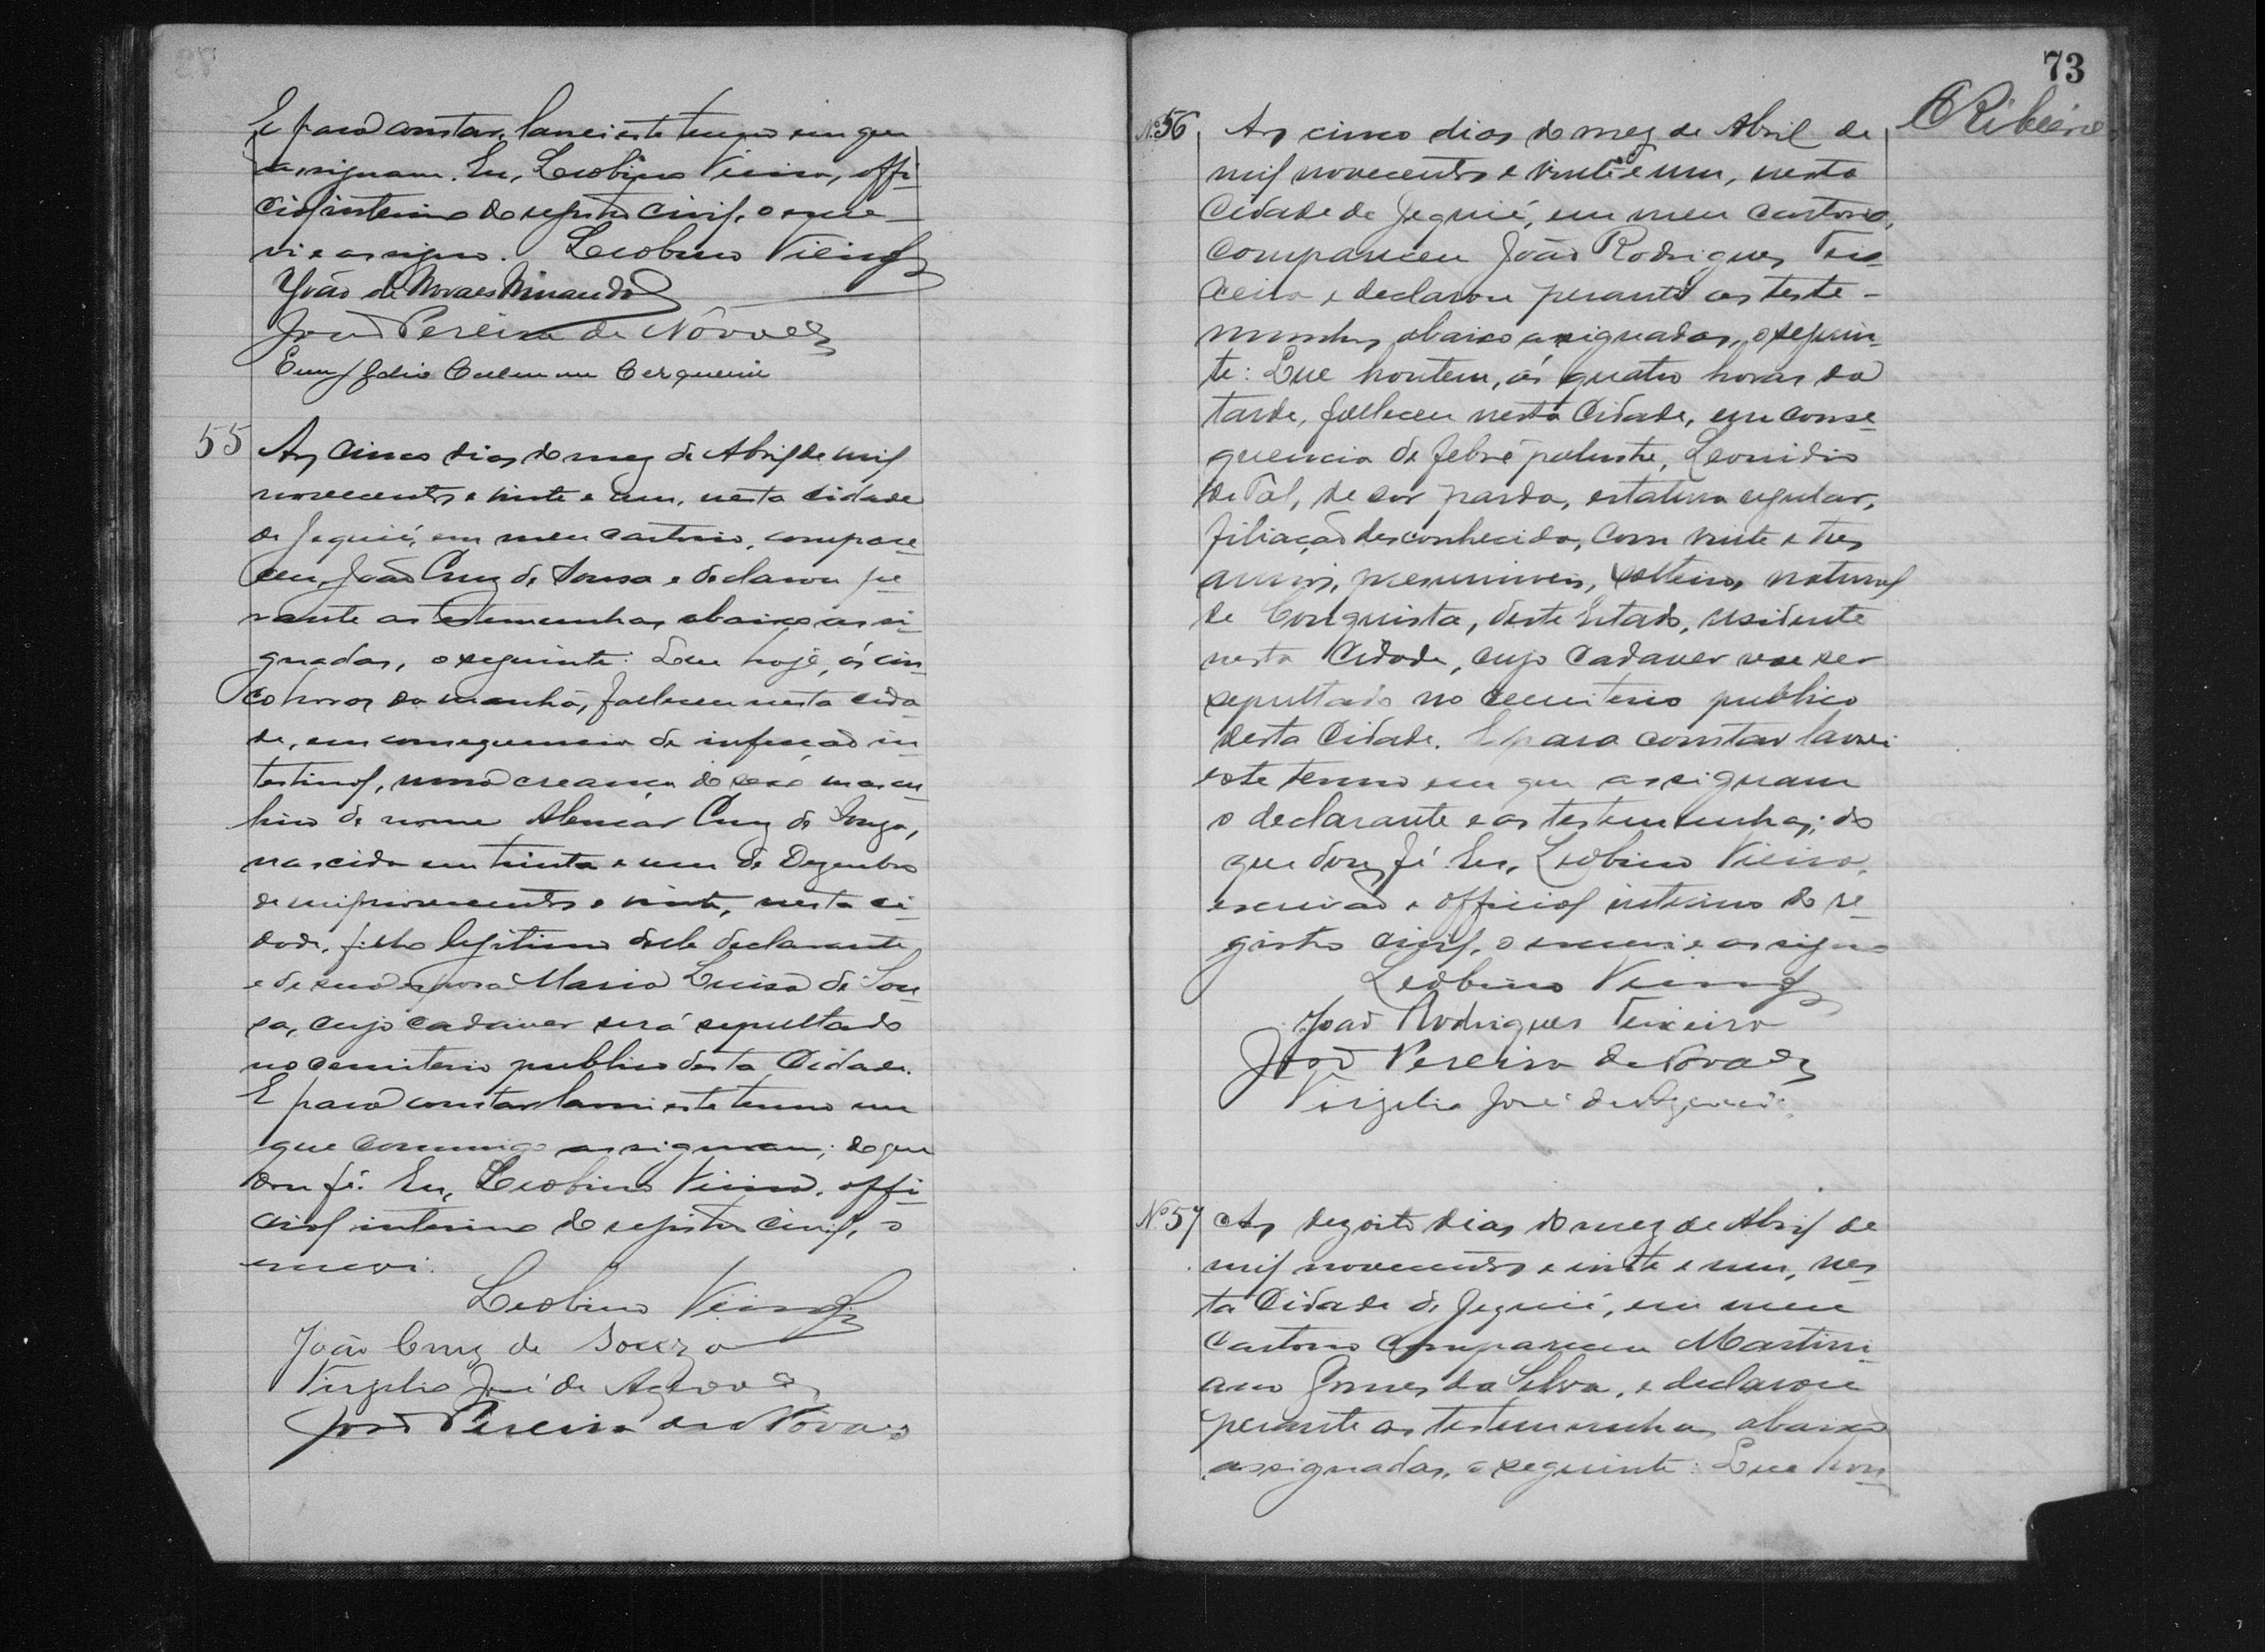 E para constar, lancei este termo em que
assignam. Eu, Leobino Vieira, offi-
cial interino do registro civil, o escre-
vi e assigno. Leobino Vieira
João de Novaes Miranda
José Pereira de Nôvaes
Cerqueira
55
Aos cinco dias do mez de Abril de mil
novecentos e vinte e um, nesta cidade
de Jequié, em meu cartorio, compare-
ceu João Cruz de Sousa e declarou pe-
rante as testemunhas abaixo assi-
gnadas, o seguinte: Que hoje, ás cin-
co horas da manhã, falleceu nesta cida-
de, em consequencia de infecção in-
testinal, uma creança do sexo mascu-
lino de nome Alencar Cruz de Souza,
nascido em trinta e um de Dezembro
de mil novecentos e vinte, nesta ci-
dade, filho legitimo delle declarante
e de sua esposa Maria Luisa de Sou-
sa, cujo cadaver será sepultado
no cemiterio publico desta Cidade.
E para constar lavrei este termo em
que commigo assignam; do que
dou fé. Eu, Leobino Vieira, offi-
cial interino do registro civil, o
escrevi.
Leobino Vieira
João Cruz de Souza
Virgilio José de Azevedo
José Pereira de Nóvaes
73
CRibeiro
Nº 56
Aos cinco dias do mez de Abril de
mil novecentos e vinte e um, nesta
Cidade de Jequié, em meu cartorio,
compareceu João Rodrigues Tei-
xeira e declarou perante as teste-
munhas abaixo assignadas, o seguin-
te: Que hontem, ás quatro horas da
tarde, falleceu nesta Cidade, em conse-
quencia de febre palustre, Leonidio
de Tal, de côr parda, estatura regular,
filiação desconhecida, com vinte e tres
annos, presumiveis, solteiro, natural
de Conquista, deste Estado, residente
nesta Cidade, cujo cadaver vae ser
sepultado no cemiterio publico
desta Cidade. E para constar lavrei
este termo em que assignam
o declarante e as testemunhas; do
que dou fé. Eu, Leobino Vieira,
escrivão e official interino do re-
gistro civil, o escrevi e assigno
Leobino Vieira
João Rodrigues Teixeira
José Pereira de Novaes
Virgilio José de Azevedo
Nº 57
Aos dezoito dias do mez de Abril de
mil novecentos e vinte e um, nes-
ta Cidade de Jequié, em meu
Cartorio compareceu Martini-
ano Gomes da Silva, e declarou
perante as testemunhas abaixo
assignadas, o seguinte: Que hon-